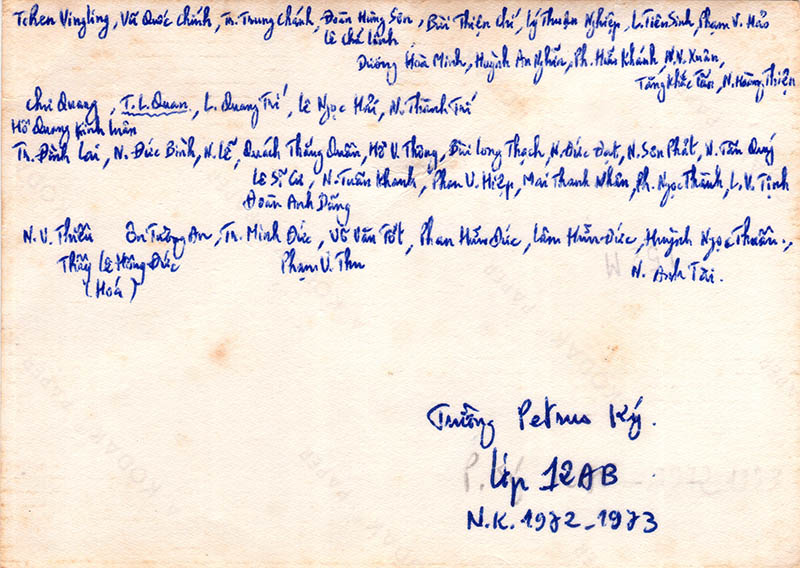 Tchen Vingling, Võ Quốc Chính, Tr. Trung Chánh, Đoàn Hùng Sơn, Bùi Thiện Chí, Lý Thuận Nghiệp, L. Tiên Sinh, Phạm V. Hảo
Lê Chá Lành
Dương Hoà Minh, Huỳnh An Nghĩa, Ph. Hữu Khánh, N.V. Xuân,
Tăng Khắc Tấn, N. Hoàng Thiện
Chu Quang, T. L. Quan, L. Quang Trí, Lê Ngọc Hải, N. Thành Trí
Hồ Quang Kinh Luân
Tr. Đình Lai, N. Đức Bình, N. Lễ, Quách Thắng Quân, Hồ V. Thông, Bùi Long Thạch, N. Đức Đạt, N. Sơn Phát, N. Tấn Quý
Lê Sĩ Cư, N. Tuấn Khanh, Phan V. Hiệp, Mai Thanh Nhân, Ph. Ngọc Thành, L. V. Tịnh
Đoàn Anh Dũng
N. V. Thiều Ôn Tường An, Tr. Minh Đức, Võ Văn Tốt, Phan Hữu Đức, Lâm Hữu Đức, Huỳnh Ngọc Thuấn,
Thầy Lê Hồng Đức Phạm V. Thu N. Anh Tài.
(Hoá)
Trường Petrus Ký.
Lớp 12AB
N.K. 1972-1973